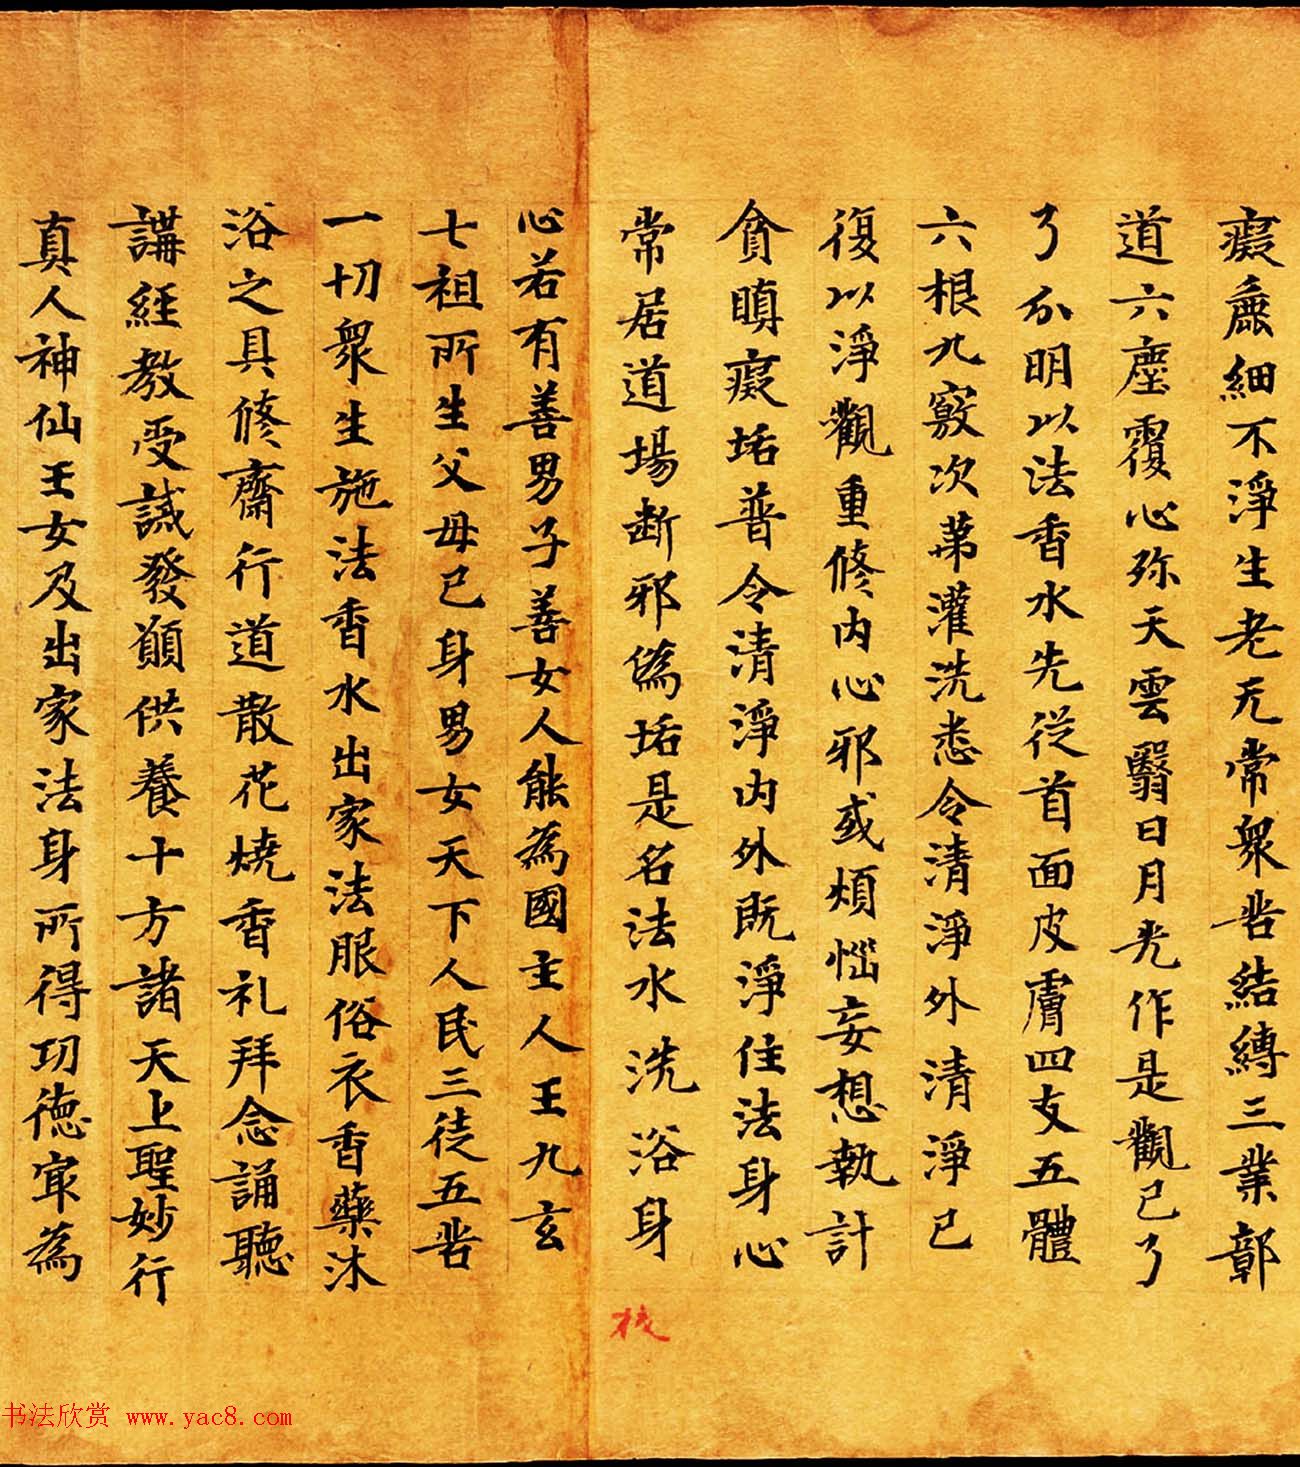 癡麁細不淨生老无常衆苦結縛三業鄣
道六塵覆心弥天雲翳日月光作是觀已了
了分明以法香水先從首面皮膚四支五體
六根九竅次第灌洗悉令清淨外清淨已
復以淨觀重修内心邪或煩惱妄想執計
貪瞋癡垢普令清淨内外既淨住法身心
常居道場断邪偽垢是名法水洗浴身
心若有善男子善女人能為國主人王九玄
七祖所生父母已身男女天下人民三徒五苦
一切衆生施法香水出家法服俗衣香藥沐
浴之具修齋行道散花燒香礼拜念誦聽
講經教受誡發願供養十方諸天上聖妙行
真人神仙玉女及出家法身所得功德冣為
校
书法欣赏 www.yac8.com